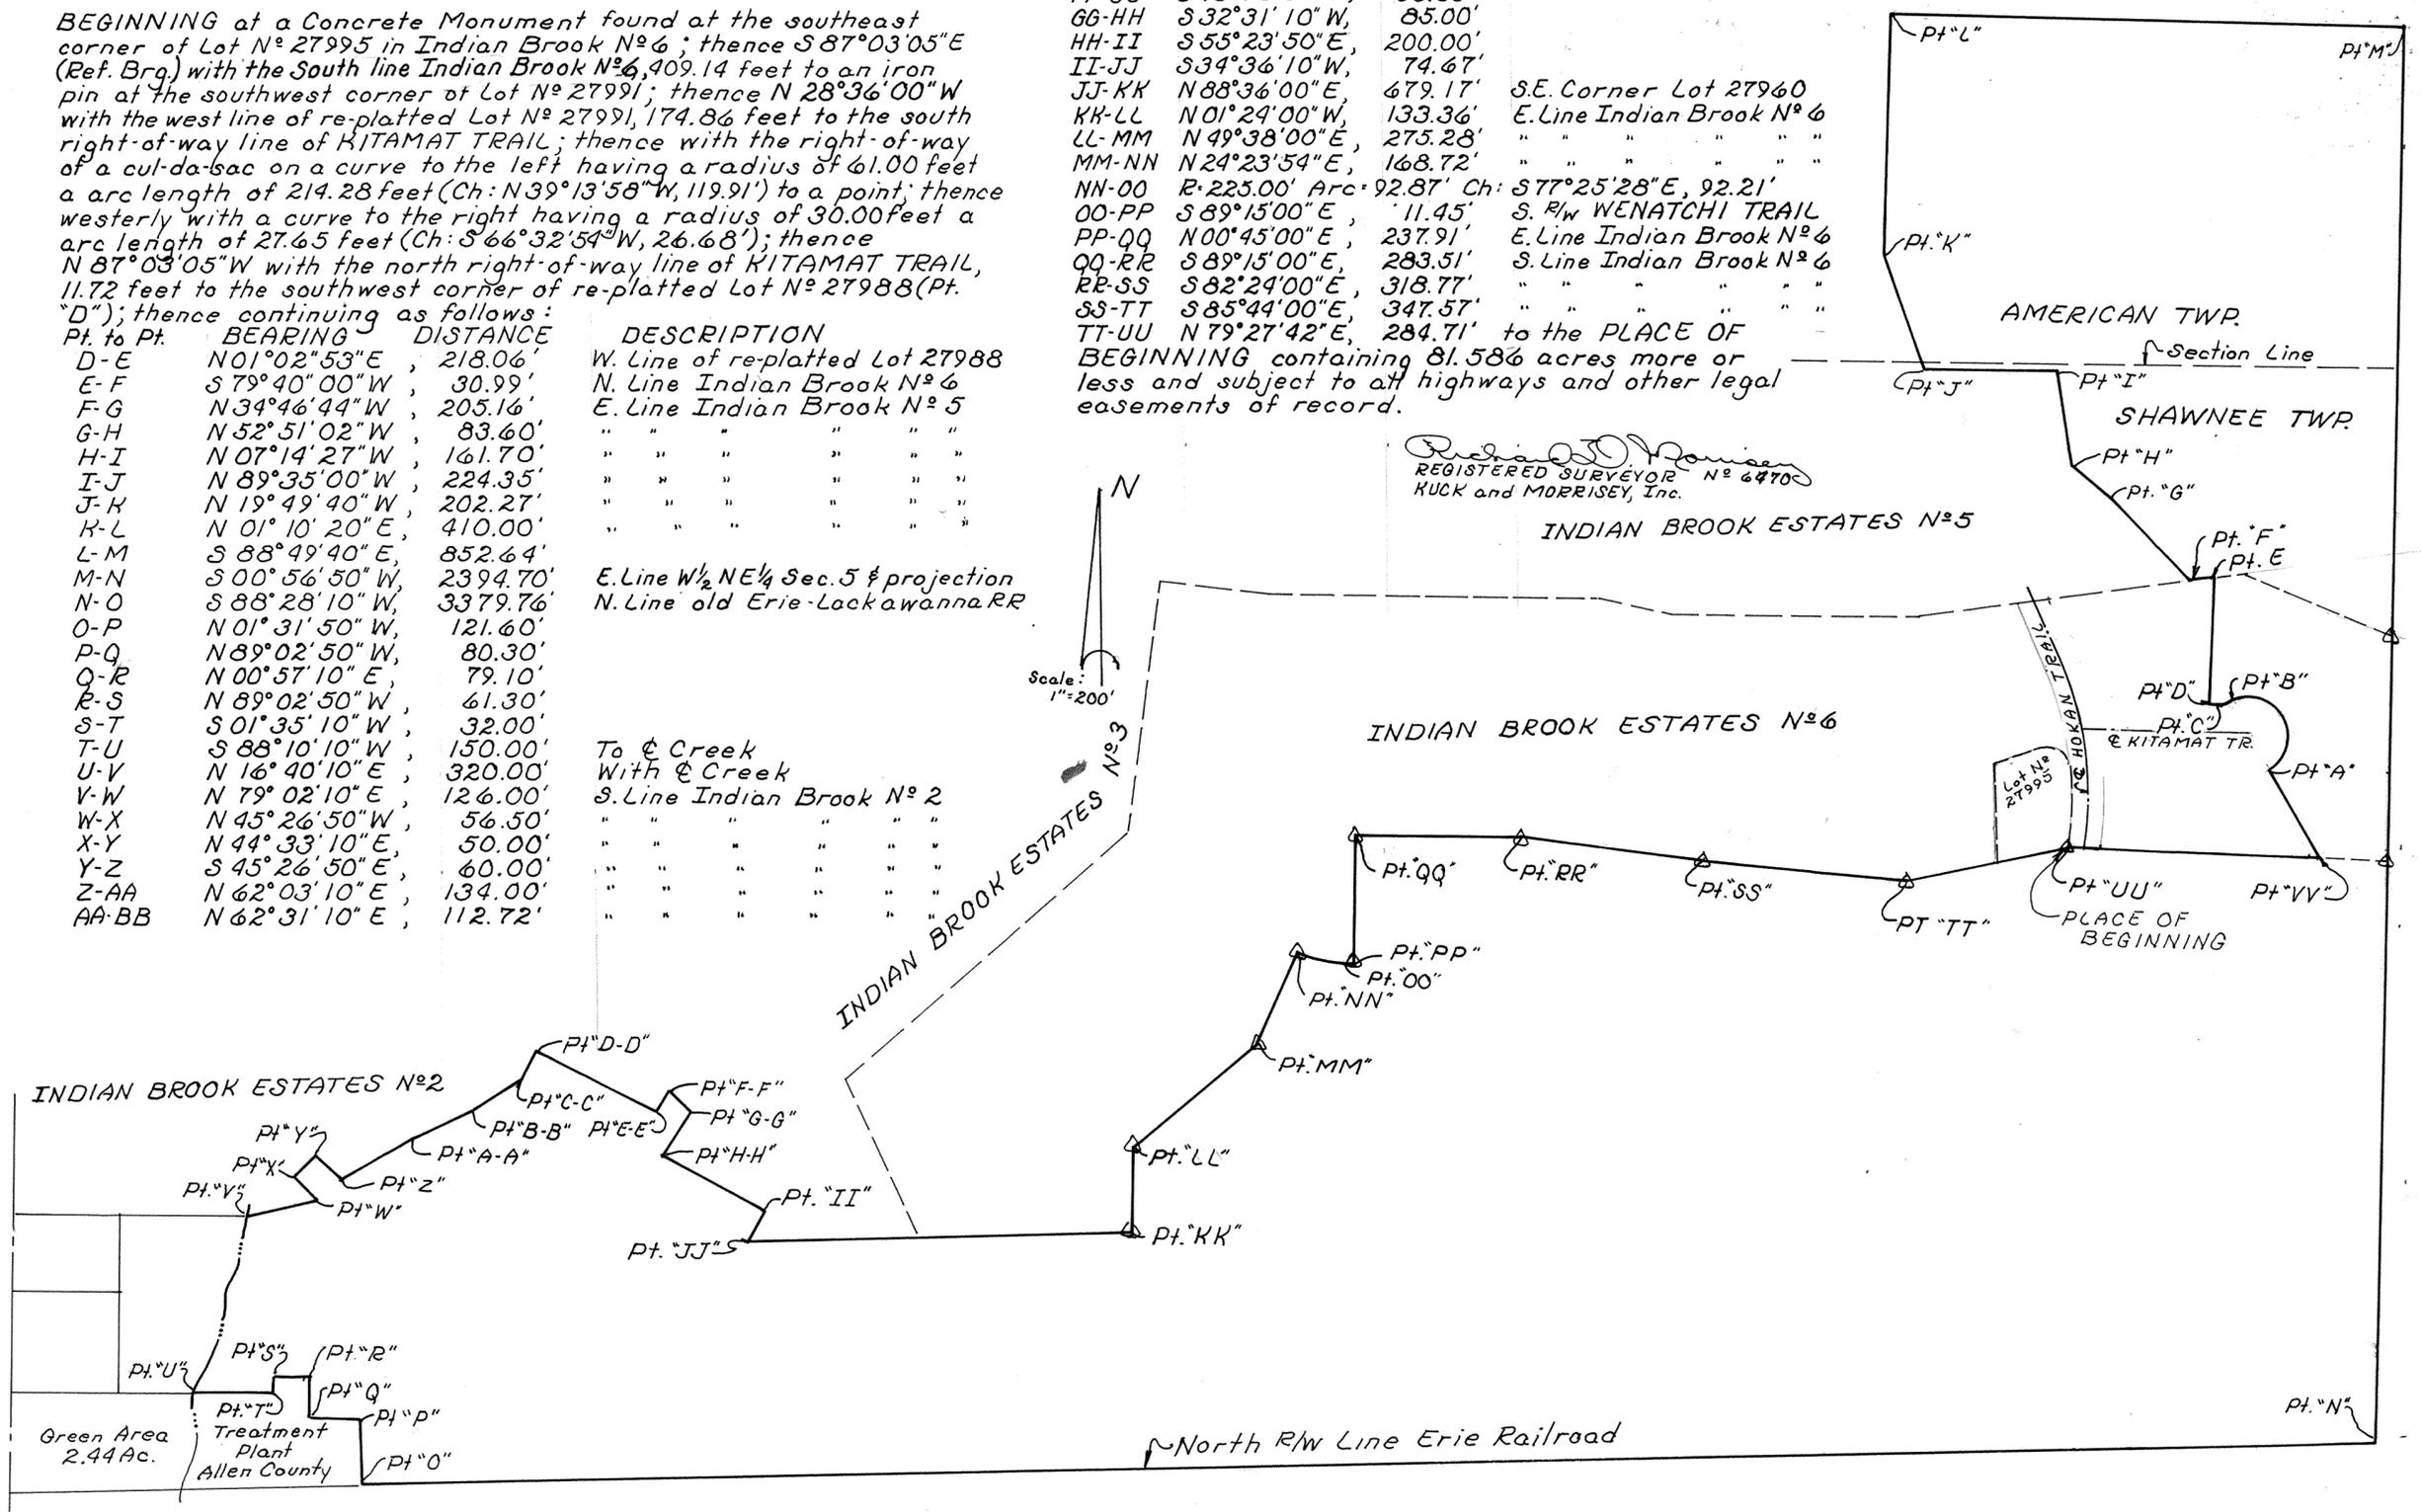 BEGINNING at a Concrete Monument found at the southeast
corner of Lot Nº 27995 in Indian Brook Nº 6 ; thence S 87°03'05"E
(Ref. Brg.) with the South line Indian Brook Nº 6, 409.14 feet to an iron
pin at the southwest corner of Lot Nº 27991; thence N 28°36'00"W
with the west line of re-platted Lot Nº 27991, 174.86 feet to the south
right-of-way line of KITAMAT TRAIL; thence with the right-of-way
of a cul-da-sac on a curve to the left having a radius of 61.00 feet
a arc length of 214.28 feet (Ch: N 39°13'58"W, 119.91') to a point; thence
westerly with a curve to the right having a radius of 30.00 feet a
arc length of 27.65 feet (Ch: S 66°32'54"W, 26.68'); thence
N 87°03'05"W with the north right-of-way line of KITAMAT TRAIL,
11.72 feet to the southwest corner of re-platted Lot Nº 27988 (Pt.
"D"); thence continuing as follows:
Pt. to Pt. BEARING DISTANCE DESCRIPTION
D-E N 01°02"53"E , 218.06' W. Line of re-platted Lot 27988
E-F S 79°40'00"W , 30.99' N. Line Indian Brook Nº 6
F-G N 34°46'44"W , 205.16' E. Line Indian Brook Nº 5
G-H N 52°51'02"W , 83.60' " " " " " "
H-I N 07°14'27"W , 161.70' " " " " " "
I-J N 89°35'00"W , 224.35' " " " " " "
J-K N 19°49'40"W , 202.27' " " " " " "
K-L N 01°10'20"E , 410.00' " " " " " "
L-M S 88°49'40"E, 852.64'
M-N S 00°56'50"W, 2394.70' E. Line W½ NE¼ Sec. 5 & projection
N-O S 88°28'10"W, 3379.76' N. Line old Erie-Lackawanna RR
O-P N 01°31'50"W, 121.60'
P-Q N 89°02'50"W, 80.30'
Q-R N 00°57'10"E , 79.10'
R-S N 89°02'50"W , 61.30'
S-T S 01°35'10"W , 32.00'
T-U S 88°10'10"W , 150.00' To ℄ Creek
U-V N 16°40'10"E , 320.00' With ℄ Creek
V-W N 79°02'10"E , 126.00' S. Line Indian Brook Nº 2
W-X N 45°26'50"W , 56.50' " " " " " "
X-Y N 44°33'10"E, 50.00' " " " " " "
Y-Z S 45°26'50"E , 60.00' " " " " " "
Z-AA N 62°03'10"E , 134.00' " " " " " "
AA-BB N 62°31'10"E , 112.72' " " " " " "
GG-HH S 32°31'10"W, 85.00'
HH-II S 55°23'50"E, 200.00'
II-JJ S 34°36'10"W, 74.67'
JJ-KK N 88°36'00"E, 679.17' S.E. Corner Lot 27960
KK-LL N 01°24'00"W, 133.36' E. Line Indian Brook Nº 6
LL-MM N 49°38'00"E, 275.28' " " " " " "
MM-NN N 24°23'54"E, 168.72' " " " " " "
NN-OO R=225.00' Arc=92.87' Ch: S 77°25'28"E, 92.21'
OO-PP S 89°15'00"E , 11.45' S. R/W WENATCHI TRAIL
PP-QQ N 00°45'00"E , 237.91' E. Line Indian Brook Nº 6
QQ-RR S 89°15'00"E, 283.51' S. Line Indian Brook Nº 6
RR-SS S 82°24'00"E , 318.77' " " " " " "
SS-TT S 85°44'00"E, 347.57' " " " " " "
TT-UU N 79°27'42"E, 284.71' to the PLACE OF
BEGINNING containing 81.586 acres more or
less and subject to all highways and other legal
easements of record.
Richard D. Morrisey
REGISTERED SURVEYOR Nº 6470
KUCK and MORRISEY, Inc.
Pt "L"
Pt "M"
Pt. "K"
AMERICAN TWP.
Section Line
Pt "J"
Pt "I"
SHAWNEE TWP.
Pt "H"
Pt. "G"
INDIAN BROOK ESTATES Nº 5
Pt. "F"
Pt. E
N
Scale:
1"=200'
INDIAN BROOK ESTATES Nº 3
INDIAN BROOK ESTATES Nº 6
℄ HOKAN TRAIL
Pt "D"
Pt "B"
Pt. "C"
℄ KITAMAT TR.
Pt "A"
Lot Nº
27995
Pt. "QQ"
Pt. "RR"
Pt. "SS"
PT "TT"
Pt "UU"
PLACE OF
BEGINNING
Pt "VV"
Pt. "PP"
Pt. "OO"
Pt. "NN"
Pt. "MM"
Pt. "LL"
Pt. "KK"
Pt "D-D"
INDIAN BROOK ESTATES Nº 2
Pt "C-C"
Pt "F-F"
Pt "G-G"
Pt "B-B"
Pt "E-E"
Pt "A-A"
Pt "H-H"
Pt "Y"
Pt "X"
Pt "Z"
Pt. "V"
Pt "W"
Pt. "II"
Pt. "JJ"
Pt "S"
Pt. "R"
Pt. "U"
Pt "Q"
Pt. "T"
Pt "P"
Green Area
2.44 Ac.
Treatment
Plant
Allen County
Pt "O"
North R/W Line Erie Railroad
Pt. "N"